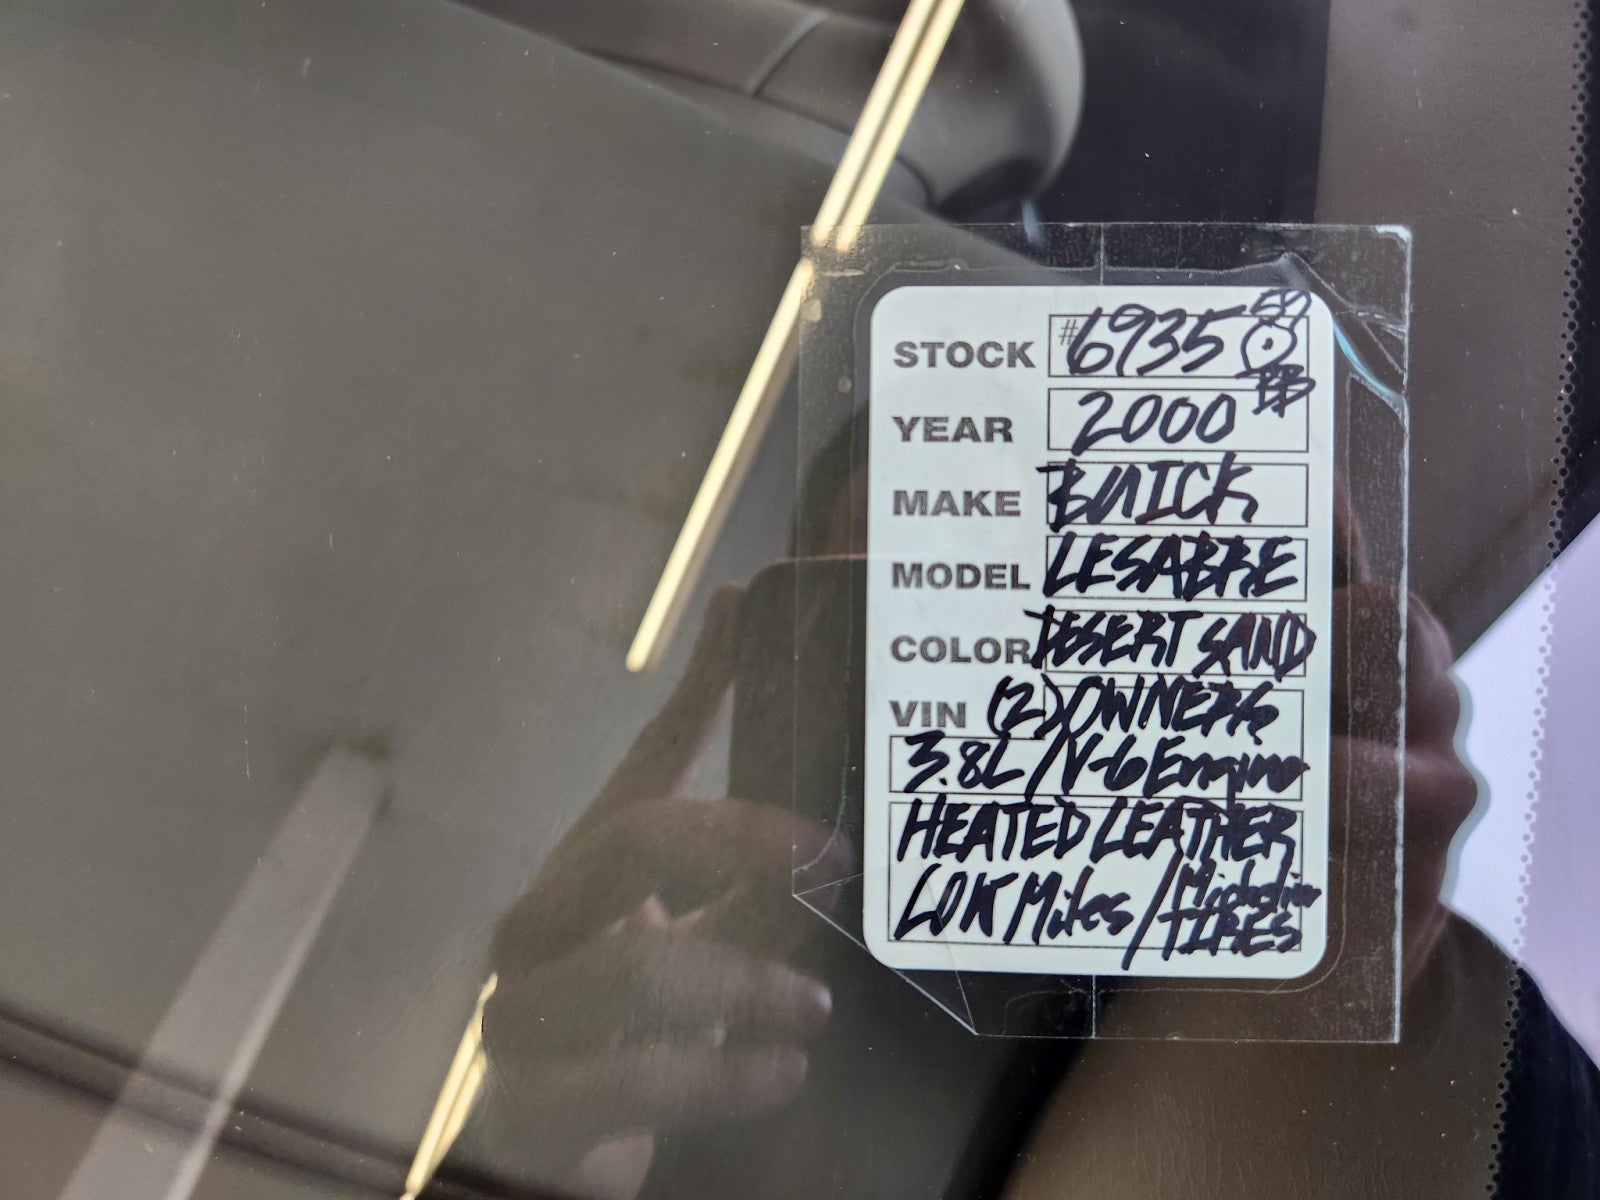 STOCK #6935
YEAR 2000
MAKE BUICK
MODEL LESABRE
COLOR DESERT SAND
VIN (2) OWNERS
3.8L / V-6 Engine
HEATED LEATHER
LOW Miles / Michelin
TIRES